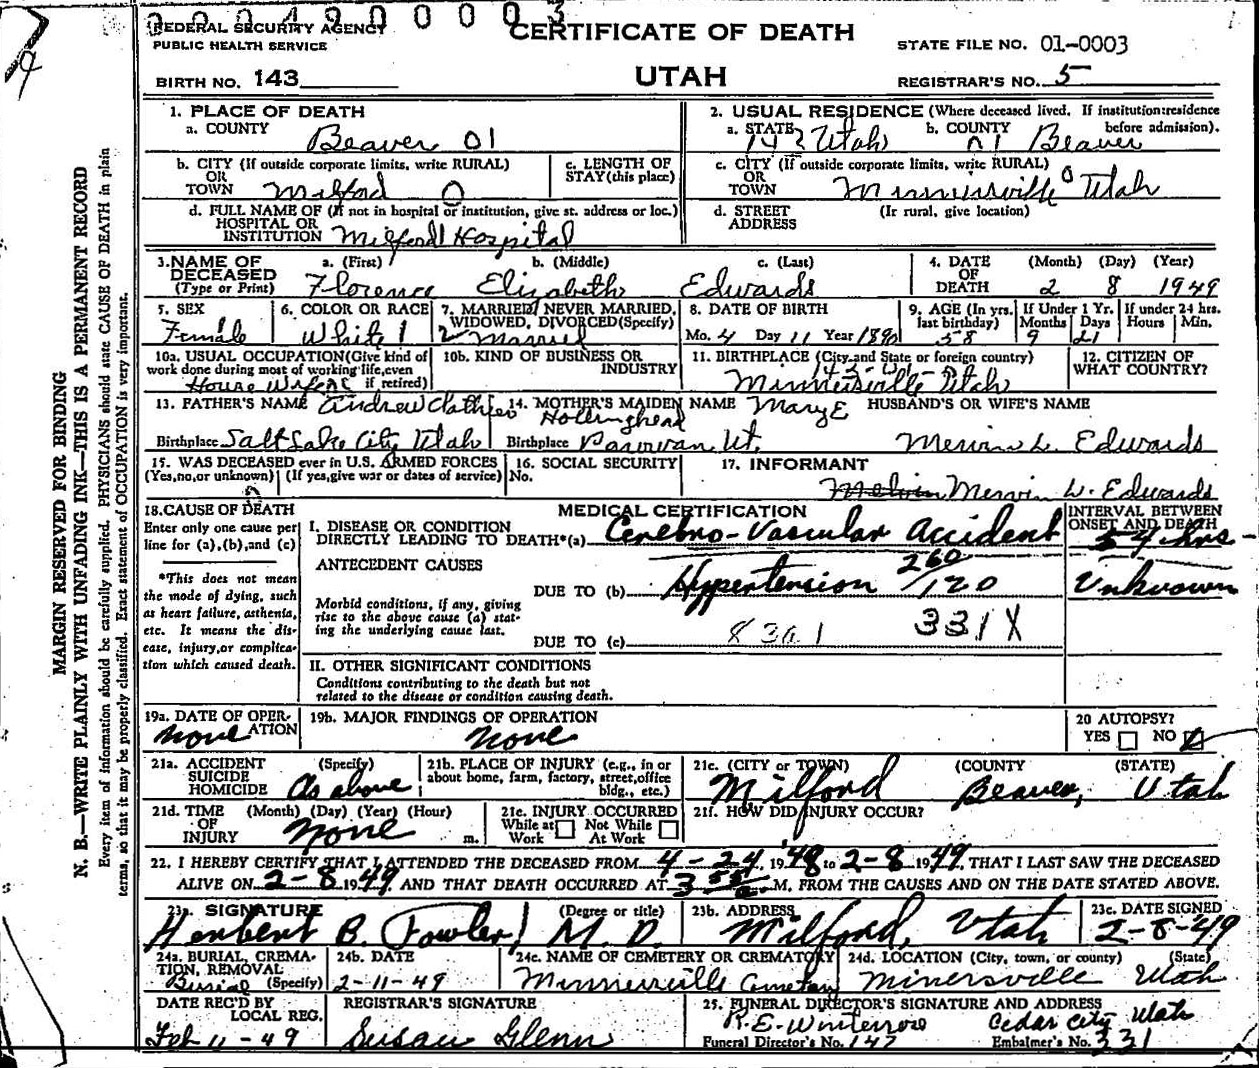 000490003
FEDERAL SECURITY AGENCY
PUBLIC HEALTH SERVICE
CERTIFICATE OF DEATH
STATE FILE NO. 01-0003
BIRTH NO. 143
UTAH
REGISTRAR'S NO. 5
1. PLACE OF DEATH
a. COUNTY Beaver 01
2. USUAL RESIDENCE (Where deceased lived. If institution: residence before admission).
a. STATE Utah b. COUNTY Beaver
b. CITY (If outside corporate limits, write RURAL) OR TOWN Milford 0
c. LENGTH OF STAY (this place)
c. CITY (If outside corporate limits, write RURAL) OR TOWN Minersville 0 Utah
d. FULL NAME OF (If not in hospital or institution, give st. address or loc.) HOSPITAL OR INSTITUTION Milford Hospital
d. STREET ADDRESS (Ir rural, give location)
3. NAME OF DECEASED (Type or Print)
a. (First) Florence b. (Middle) Elizabeth c. (Last) Edwards
4. DATE OF DEATH (Month) (Day) (Year) 2 8 1949
5. SEX Female
6. COLOR OR RACE White 1
7. MARRIED, NEVER MARRIED, WIDOWED, DIVORCED (Specify) Married
8. DATE OF BIRTH Mo. 4 Day 11 Year 1890
9. AGE (In yrs. last birthday) 58 If Under 1 Yr. Months 9 Days 21 If under 24 hrs. Hours Min.
10a. USUAL OCCUPATION (Give kind of work done during most of working life, even if retired) House Wife
10b. KIND OF BUSINESS OR INDUSTRY
11. BIRTHPLACE (City and State or foreign country) Minersville Utah
12. CITIZEN OF WHAT COUNTRY?
13. FATHER'S NAME Andrew
Birthplace Salt Lake City, Utah
14. MOTHER'S MAIDEN NAME Mary E Hollingshead
Birthplace Parowan, Ut.
HUSBAND'S OR WIFE'S NAME
Mervin L. Edwards
15. WAS DECEASED ever in U.S. ARMED FORCES (Yes, no, or unknown) (If yes, give war or dates of service)
16. SOCIAL SECURITY No.
17. INFORMANT
Mervin W. Edwards
18. CAUSE OF DEATH
Enter only one cause per line for (a), (b), and (c)
*This does not mean the mode of dying, such as heart failure, asthenia, etc. It means the disease, injury, or complication which caused death.
MEDICAL CERTIFICATION
I. DISEASE OR CONDITION DIRECTLY LEADING TO DEATH*(a) Cerebro-Vascular Accident
INTERVAL BETWEEN ONSET AND DEATH
54 hrs-
ANTECEDENT CAUSES
Morbid conditions, if any, giving rise to the above cause (a) stating the underlying cause last.
DUE TO (b) Hypertension 260/120 Unknown
DUE TO (c) 331X
II. OTHER SIGNIFICANT CONDITIONS
Conditions contributing to the death but not related to the disease or condition causing death.
19a. DATE OF OPERATION None
19b. MAJOR FINDINGS OF OPERATION None
20 AUTOPSY? YES NO
21a. ACCIDENT SUICIDE HOMICIDE (Specify) As above
21b. PLACE OF INJURY (e.g., in or about home, farm, factory, street, office bldg., etc.)
21c. (CITY or TOWN) (COUNTY (STATE)
Milford Beaver, Utah
21d. TIME OF INJURY (Month) (Day) (Year) (Hour) m. None
21e. INJURY OCCURRED While at Work Not While At Work
21f. HOW DID INJURY OCCUR?
22. I HEREBY CERTIFY THAT I ATTENDED THE DECEASED FROM 4-24 1948 to 2-8 1949, THAT I LAST SAW THE DECEASED
ALIVE ON 2-8 1949 AND THAT DEATH OCCURRED AT 3 55 M. FROM THE CAUSES AND ON THE DATE STATED ABOVE.
23a. SIGNATURE (Degree or title)
Herbert B. Fowler, M.D.
23b. ADDRESS Milford, Utah
23c. DATE SIGNED 2-8-49
24a. BURIAL, CREMATION, REMOVAL (Specify) Burial
24b. DATE 2-11-49
24c. NAME OF CEMETERY OR CREMATORY Minersville Cemetery
24d. LOCATION (City, town, or county) (State) Minersville Utah
DATE REC'D BY LOCAL REG. Feb 11-49
REGISTRAR'S SIGNATURE Susan Glenn
25. FUNERAL DIRECTOR'S SIGNATURE AND ADDRESS
R.E. Winterrose Cedar City Utah
Funeral Director's No. 147 Embalmer's No. 331
MARGIN RESERVED FOR BINDING
N. B.—WRITE PLAINLY WITH UNFADING INK—THIS IS A PERMANENT RECORD
Every item of information should be carefully supplied. PHYSICIANS should state CAUSE OF DEATH in plain
terms, so that it may be properly classified. Exact statement of OCCUPATION is very important.